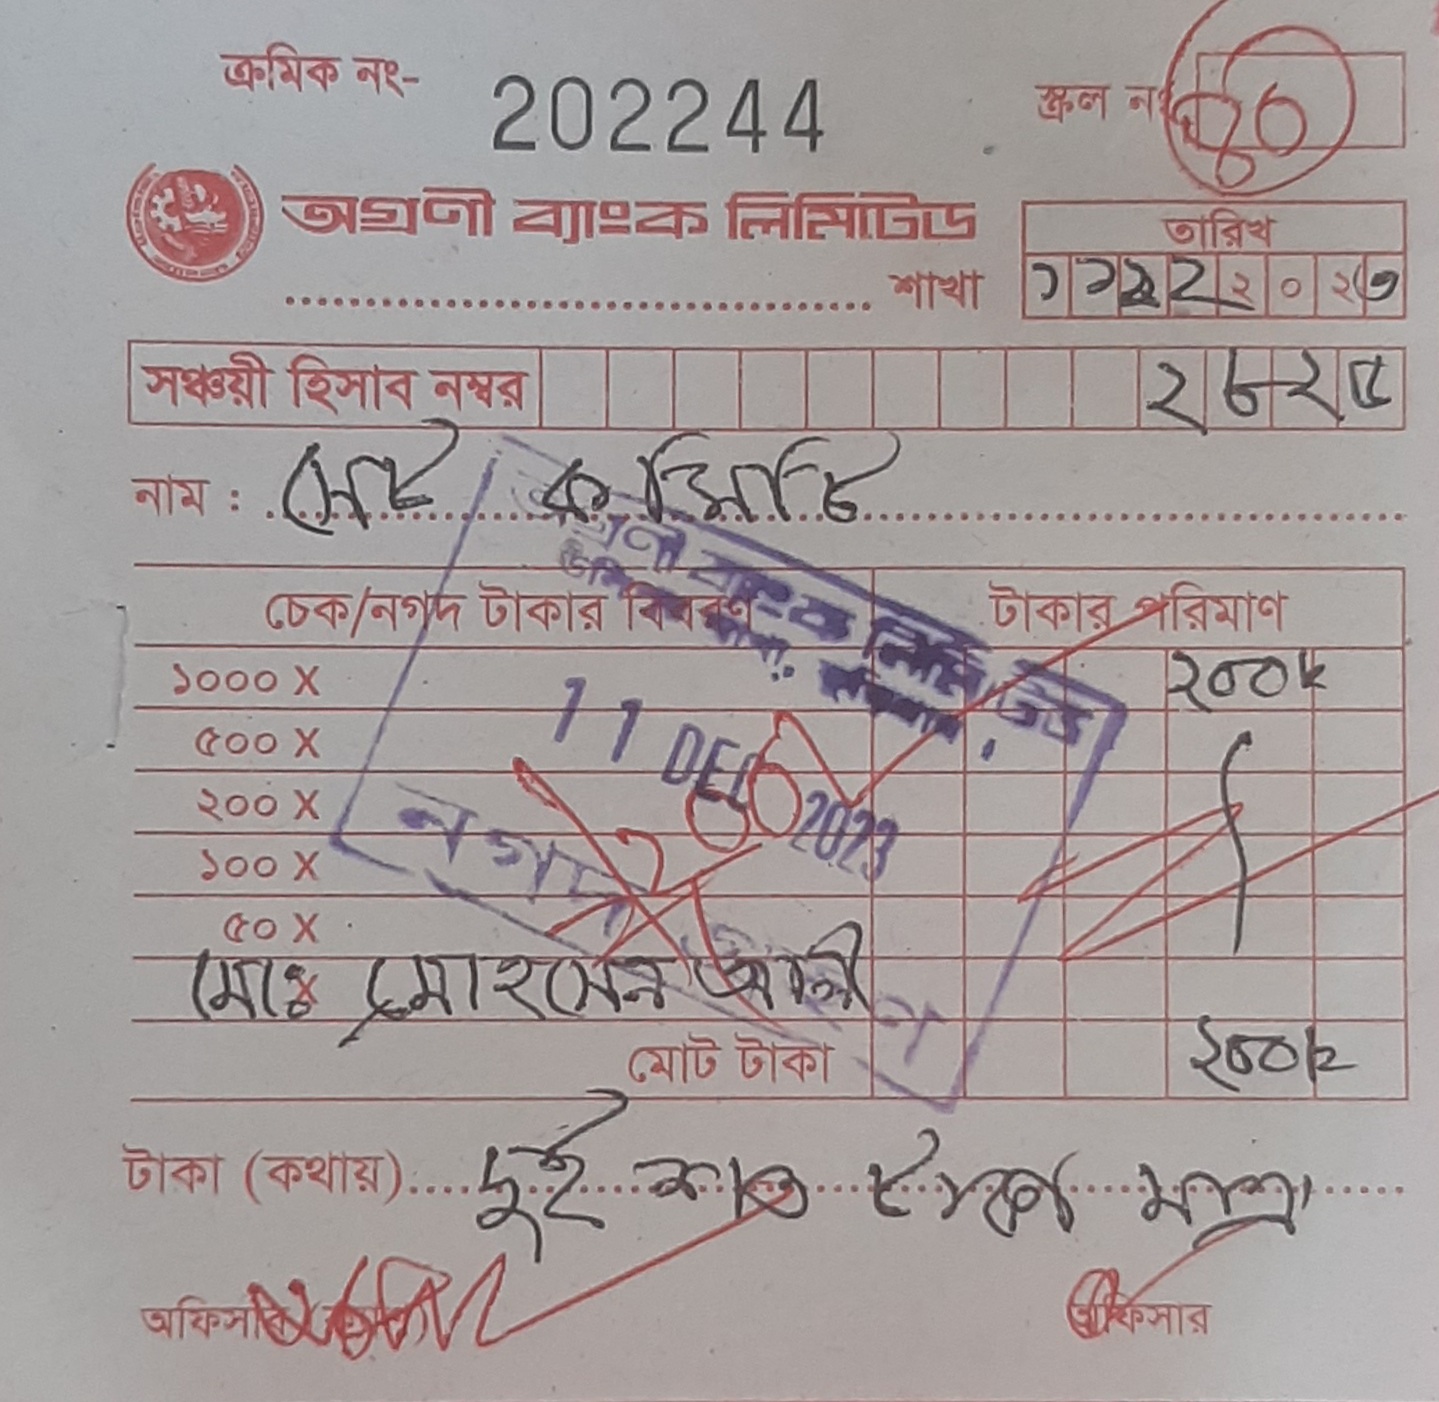 ক্রমিক নং- 202244
স্ক্রল নং
অগ্রণী ব্যাংক লিমিটেড
শাখা
তারিখ
১১১২২০২৩
সঞ্চয়ী হিসাব নম্বর ২৮২৫
নাম : সেচ কমিটি
অগ্রণী ব্যাংক লিমিটেড
চেক/নগদ টাকার বিবরণ টাকার পরিমাণ
১০০০ X ২০০৲
৫০০ X
11 DEC 2023
২০০ X
নগদ গ্রহণ
১০০ X
৫০ X
মোঃ মোহসেন আলী
X
মোট টাকা ২০০৲
টাকা (কথায়) দুই শত টাকা মাত্র
অফিসার
অফিসার